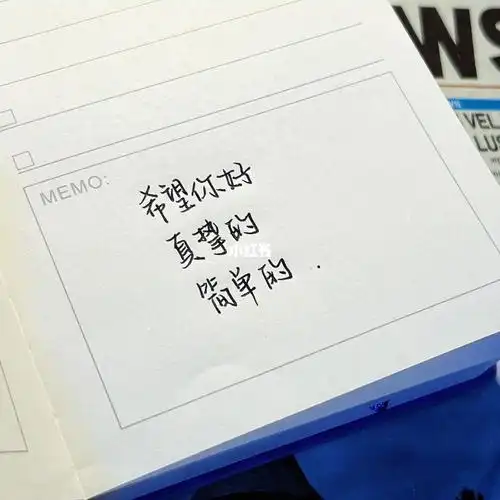 WS
VEL
LUS
MEMO:
希望你好
真挚的
简单的.
小红书